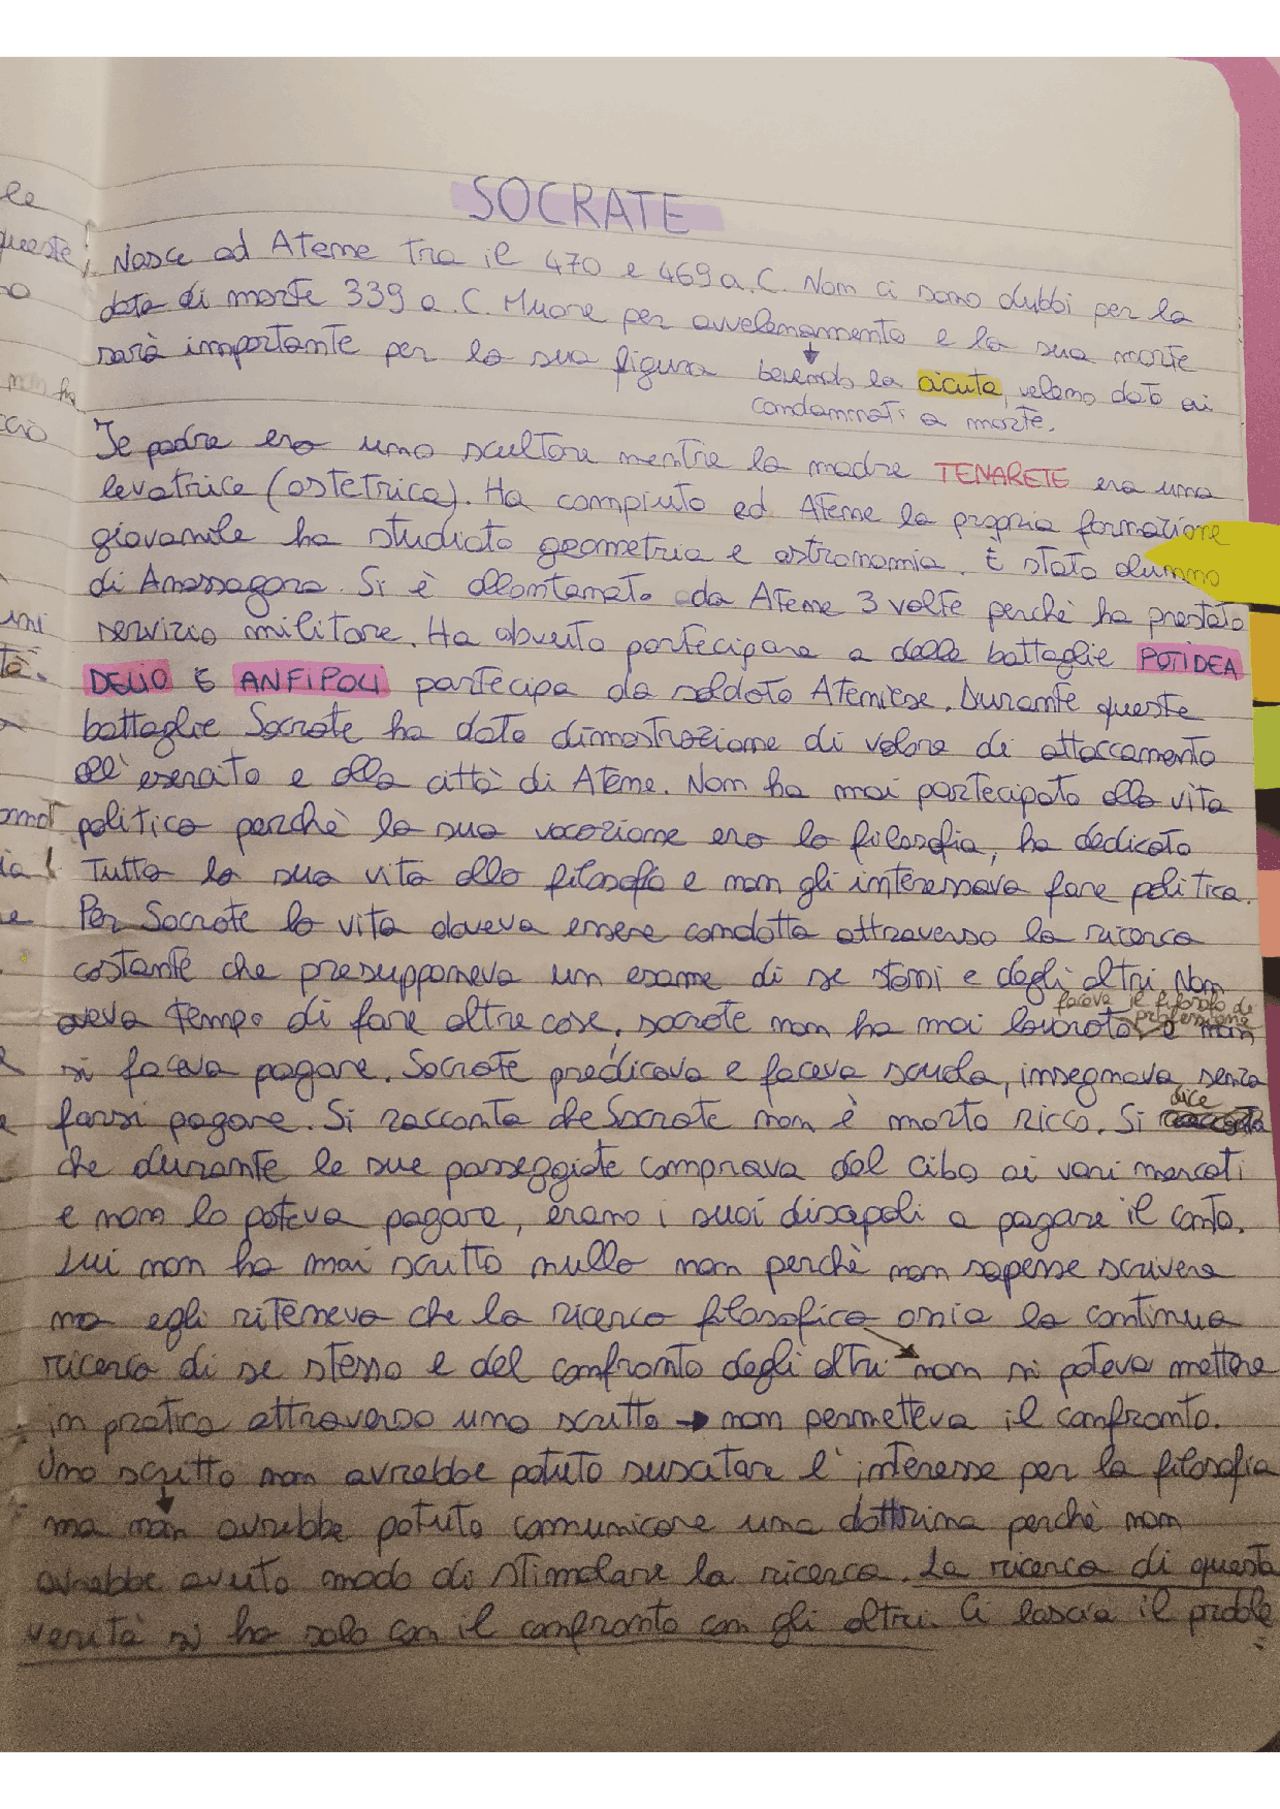 SOCRATE
Nasce ad Atene tra il 470 e 469 a.C. Non ci sono dubbi per la
data di morte 339 a.C. Muore per avvelenammento e la sua morte
sarà importante per la sua figura
bevendo la cicuta, veleno dato ai
condannati a morte.
Il padre era uno scultore mentre la madre TENARETE era una
levatrice (ostetrica). Ha compiuto ad Atene la propria formazione
giovanile ha studiato geometria e astronomia. È stato alunno
di Anassagora. Si è allontanato da Atene 3 volte perchè ha prestato
servizio militare. Ha dovuto partecipare a delle battaglie POTIDEA
DELIO E ANFIPOLI partecipa da soldato Ateniese. Durante queste
battaglie Socrate ha dato dimostrazione di valore di attaccamento
all'esercito e alla città di Atene. Non ha mai partecipato alla vita
politica perchè la sua vocazione era la filosofia, ha dedicato
tutta la sua vita alla filosofia e non gli interessava fare politica.
Per Socrate la vita doveva essere condotta attraverso la ricerca
costante che presupponeva un esame di se stessi e degli altri. Non
faceva il filosofo di
professione
aveva tempo di fare altre cose, socrate non ha mai lavorato e non
si faceva pagare. Socrate predicava e faceva scuola, insegnava senza
farsi pagare. Si racconta che Socrate non è morto ricco. Si dice
che durante le sue passeggiate comprava del cibo ai vari mercati
e non lo poteva pagare, erano i suoi discepoli a pagare il conto.
Lui non ha mai scritto nulla non perchè non sapesse scrivere
ma egli riteneva che la ricerca filosofica ossia la continua
ricerca di se stesso e del confronto degli altri non si poteva mettere
in pratica attraverso uno scritto → non permetteva il confronto.
Uno scritto non avrebbe potuto suscitare l'interesse per la filosofia
ma non avrebbe potuto comunicare una dottrina perchè non
avrebbe avuto modo di stimolare la ricerca. La ricerca di questa
verità si ha solo con il confronto con gli altri. Ci lascia il proble
le
queste
non ha
tà.